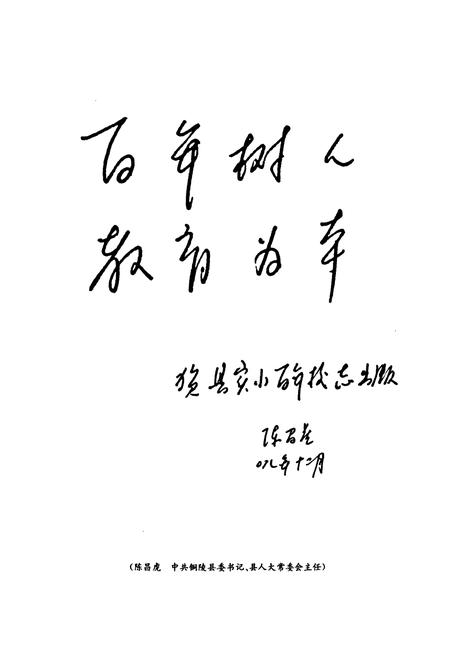 百年树人
教育为本
贺县实小百年校志出版
陈昌虎
〇八年十二月
（陈昌虎　中共铜陵县委书记、县人大常委会主任）